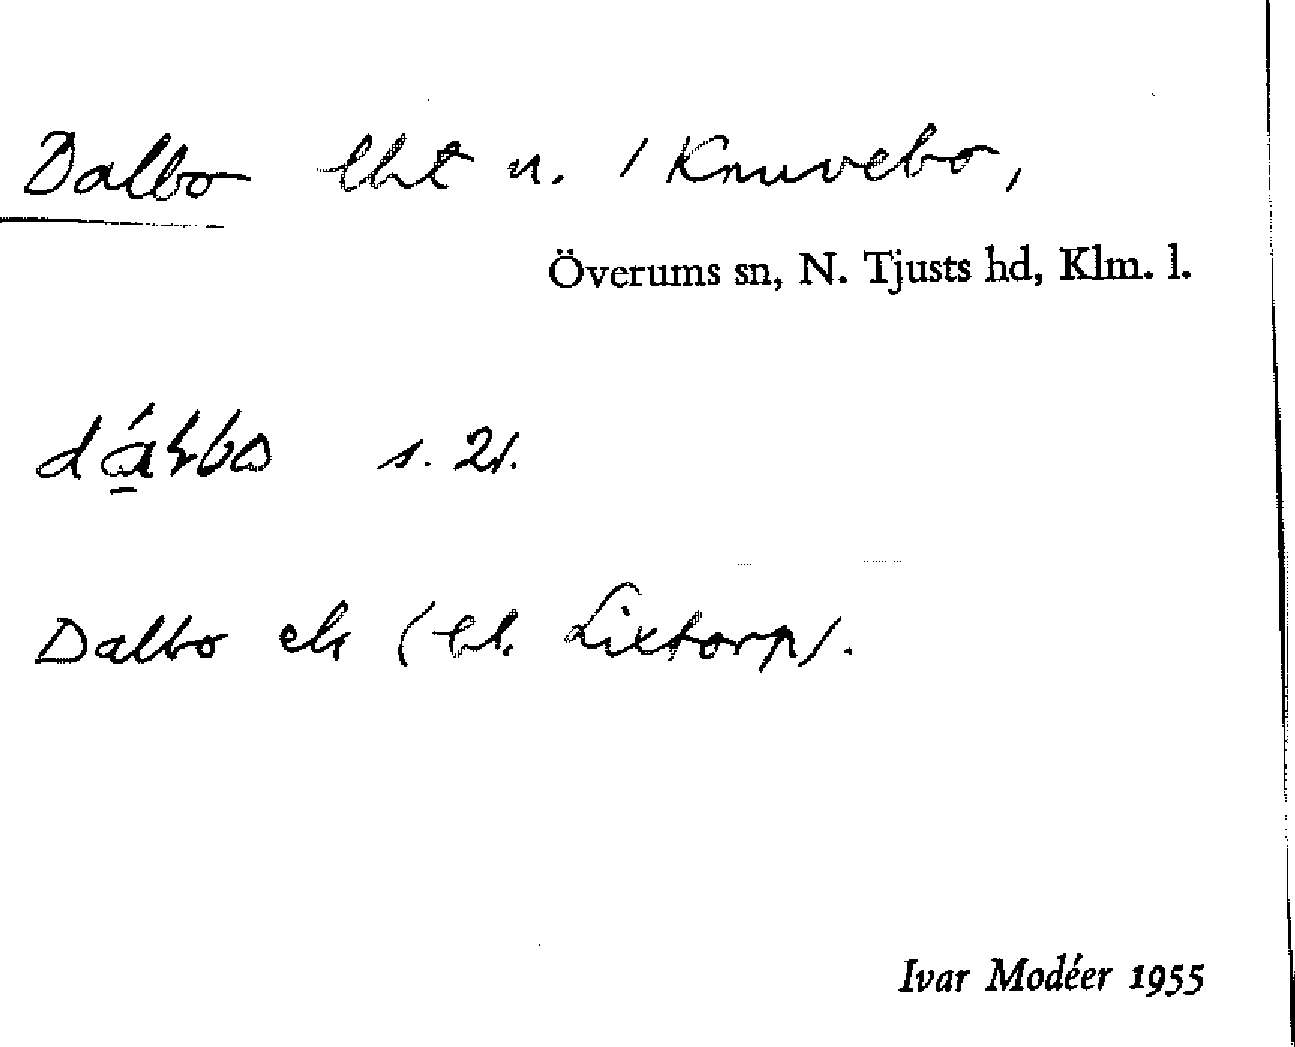 Dalbo lht u. / Knuvebo,
Överums sn, N. Tjusts hd, Klm. l.
s. 21.
Dalbo ek (bl. Lixtorp).
Ivar Modéer 1955